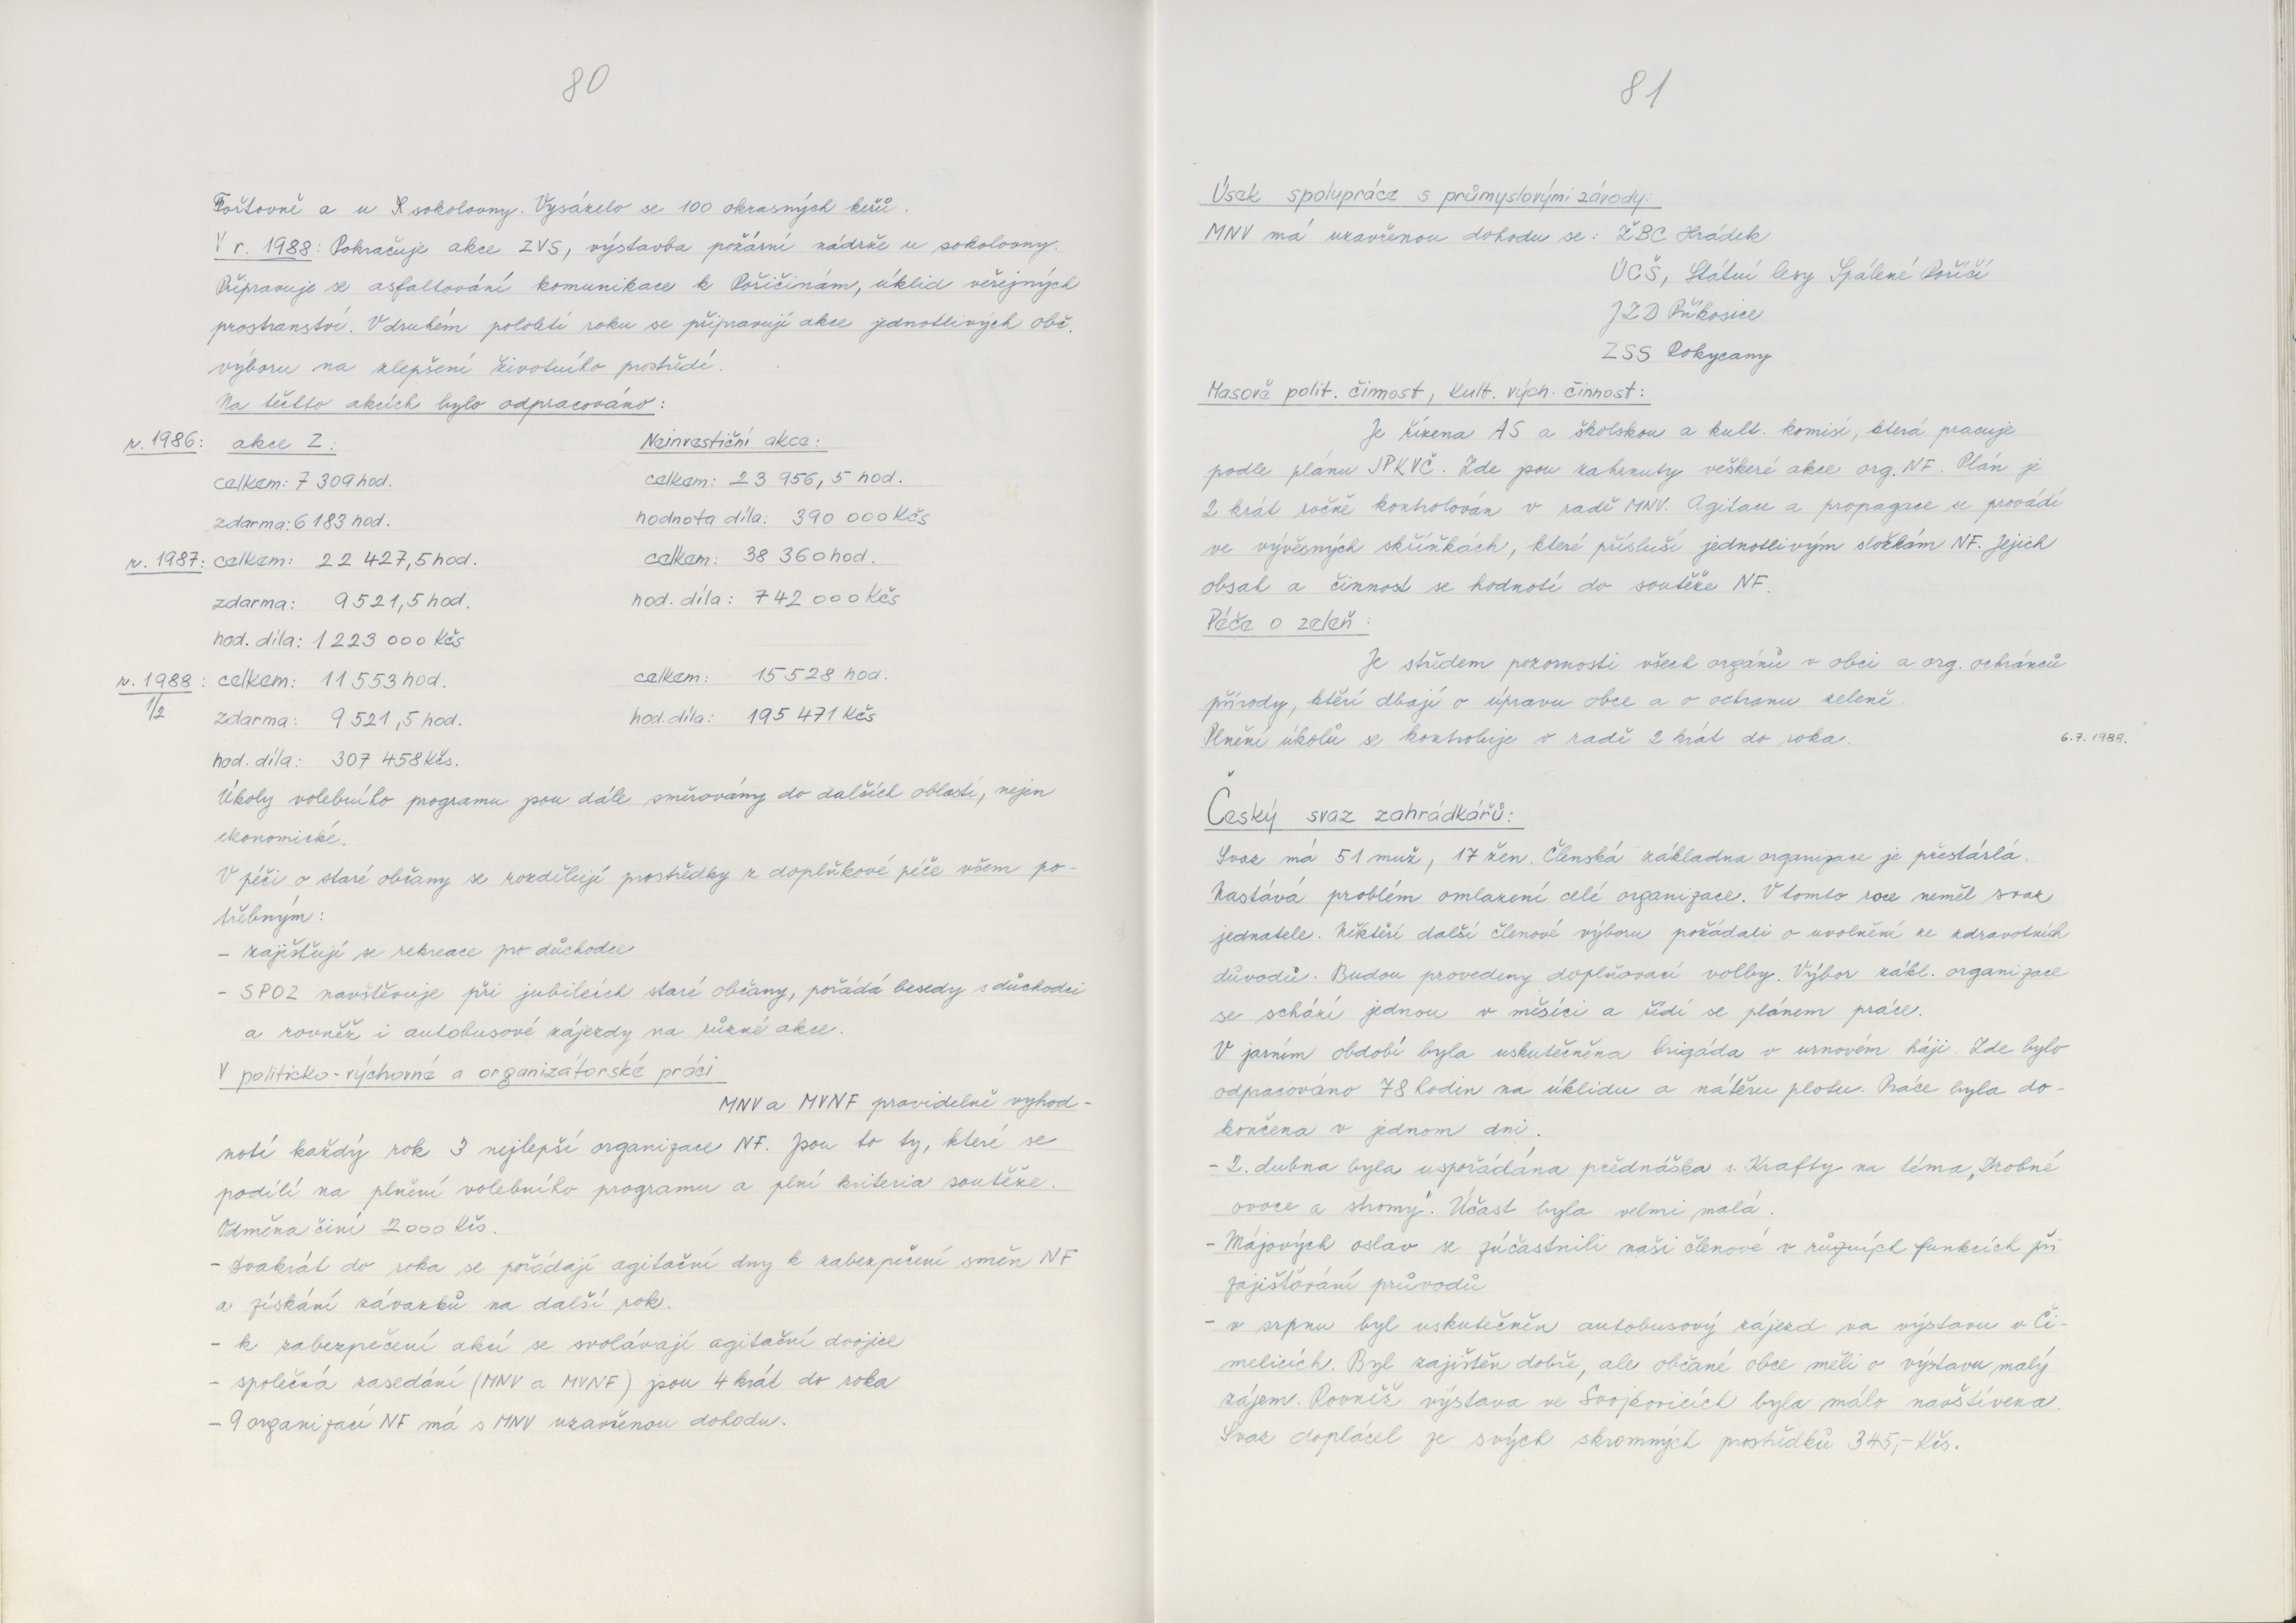 80
Fořtovně a u sokolovny. Vysázelo se 100 okrasných keřů.
V r. 1988: Pokračuje akce ZVS, výstavba požární nádrže u sokolovny.
Připravuje se asfaltování komunikace k Pořičinám, úklid veřejných
prostranství. V druhém pololetí roku se připravují akce jednotlivých obč.
výboru na zlepšení životního prostředí.
Na těchto akcích bylo odpracováno:
r. 1986: akce Z: Neinvestiční akce:
celkem: 7 309 hod. celkem: 23 956,5 hod.
zdarma: 6 183 hod. hodnota díla: 390 000 Kčs
r. 1987: celkem: 22 427,5 hod. celkem: 38 360 hod.
zdarma: 9 521,5 hod. hod. díla: 742 000 Kčs
hod. díla: 1 223 000 Kčs
r. 1988: celkem: 11 553 hod. celkem: 15 528 hod.
1/2 zdarma: 9 521,5 hod. hod. díla: 195 471 Kčs
hod. díla: 307 458 Kčs.
Úkoly volebního programu jsou dále směrovány do dalších oblastí, nejen
ekonomické.
V péči o staré občany se rozdělují prostředky z doplňkové péče všem po-
třebným:
- zajišťují se rekreace pro důchodce
- SPOZ navštěvuje při jubileích staré občany, pořádá besedy s důchodci
a rovněž i autobusové zájezdy na různé akce.
V politicko-výchovné a organizátorské práci
MNV a MVNF pravidelně vyhod-
notí každý rok 3 nejlepší organizace NF. Jsou to ty, které se
podílí na plnění volebního programu a plní kriteria soutěže.
Odměna činí 2000 Kčs.
- dvakrát do roka se pořádají agitační dny k zabezpečení směn NF
a získání závazků na další rok.
- k zabezpečení akcí se svolávají agitační dvojice
- společná zasedání (MNV a MVNF) jsou 4 krát do roka
- 9 organizací NF má s MNV uzavřenou dohodu.
81
Úsek spolupráce s průmyslovými závody:
MNV má uzavřenou dohodu se: ŽBC Hrádek
ÚCŠ, Státní lesy Spálené Poříčí
JZD Příkosice
ZSS Rokycany
Masově polit. činnost, kult. vých. činnost:
Je řízena AS a školskou a kult. komisí, která pracuje
podle plánu JPKVČ. Zde jsou zahrnuty veškeré akce org. NF. Plán je
2 krát ročně kontrolován v radě MNV. Agitace a propagace se provádí
ve vývěsných skříňkách, které přísluší jednotlivým složkám NF. Jejich
obsah a činnost se hodnotí do soutěže NF.
Péče o zeleň:
Je středem pozornosti všech orgánů v obci a org. ochránců
přírody, kteří dbají o úpravu obce a o ochranu zeleně.
Plnění úkolů se kontroluje v radě 2 krát do roka. 6.7.1988.
Český svaz zahrádkářů:
Svaz má 51 muž, 17 žen. Členská základna organizace je přestárlá.
Nastává problém omlazení celé organizace. V tomto roce neměl svaz
jednatele. Někteří další členové výboru požádali o uvolnění ze zdravotních
důvodů. Budou provedeny doplňovací volby. Výbor zákl. organizace
se schází jednou v měsíci a řídí se plánem práce.
V jarním období byla uskutečněna brigáda v urnovém háji. Zde bylo
odpracováno 78 hodin na úklidu a nátěru plotu. Práce byla do-
končena v jednom dni.
- 2. dubna byla uspořádána přednáška s. Krafty na téma „Drobné
ovoce a stromy". Účast byla velmi malá.
- Májových oslav se zúčastnili naši členové v různých funkcích při
zajišťování průvodů
- v srpnu byl uskutečněn autobusový zájezd na výstavu v Či-
melicích. Byl zajištěn dobře, ale občané obce měli o výstavu malý
zájem. Rovněž výstava ve Svojkovicích byla málo navštívena.
Svaz doplácel ze svých skromných prostředků 345,- Kčs.